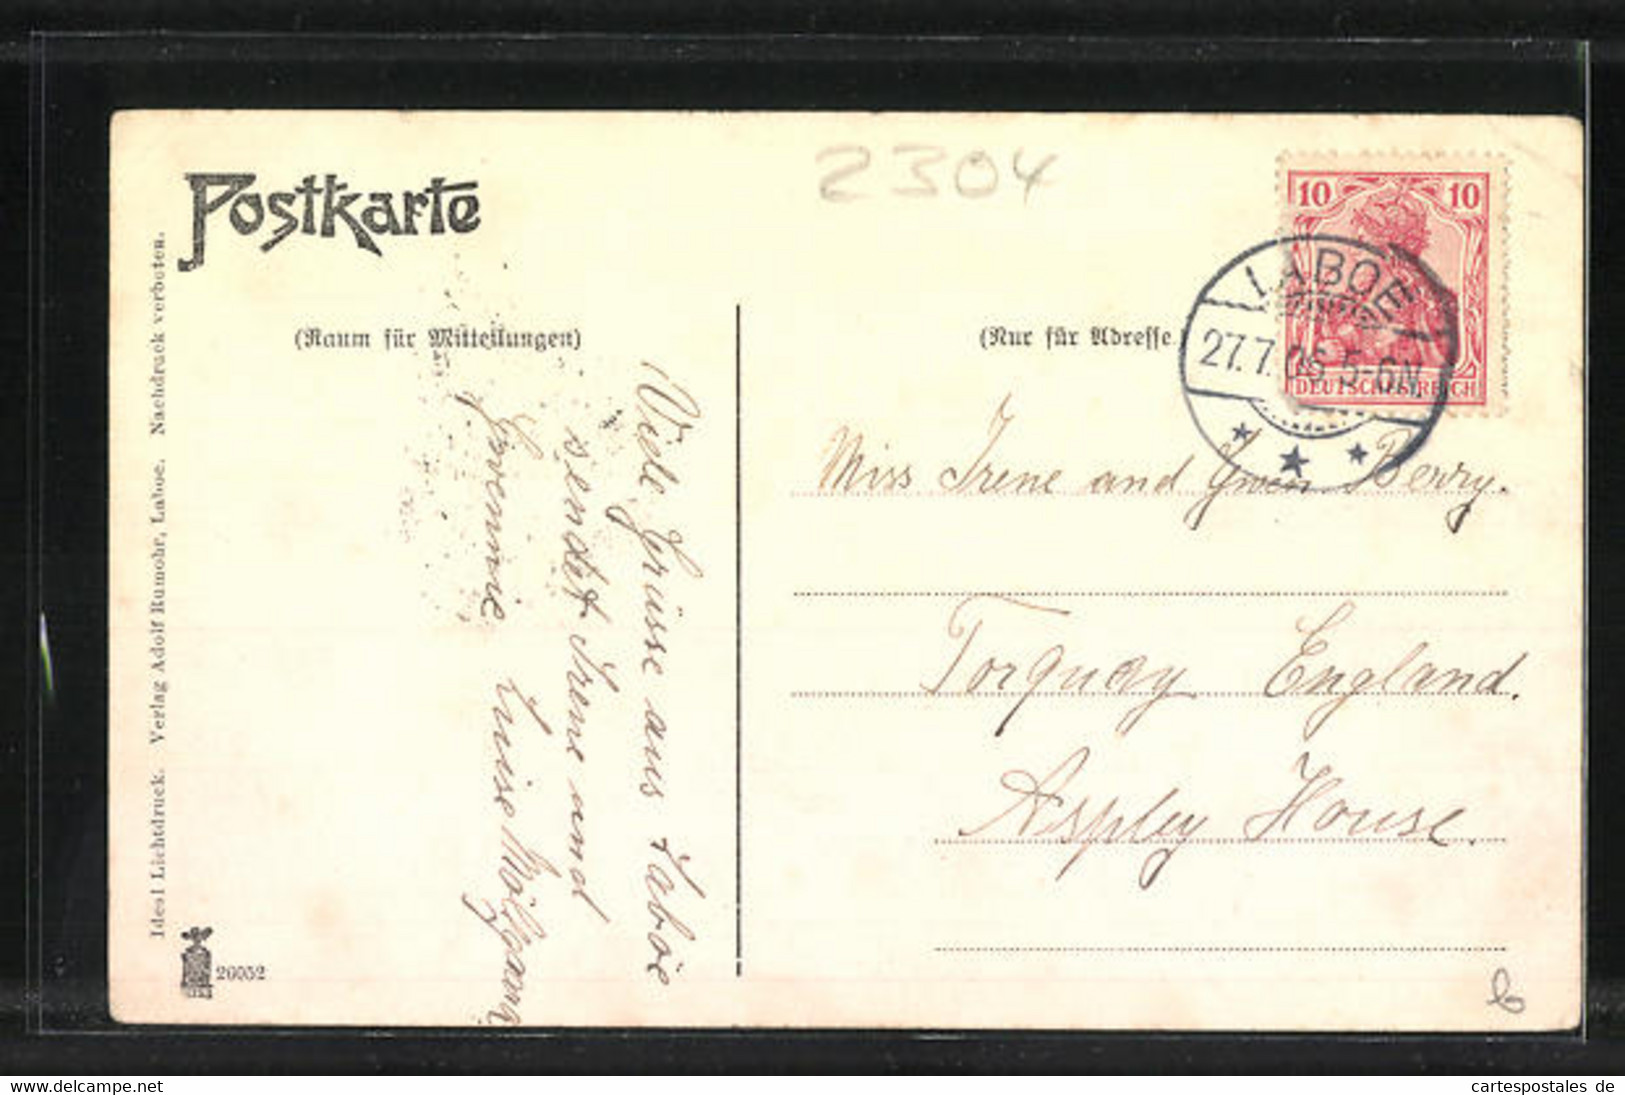 Postkarte
2304
10 10
DEUTSCHES REICH
LABOE
27.7.06. 5-6N.
(Raum für Mitteilungen)
(Nur für Adresse
Viele Grüsse aus Laboe
sendet Irene und
Luise
Miss Irene and Gwen Berry.
Torquay England.
Aspley House.
Ideal Lichtdruck. Verlag Adolf Rumohr, Laboe. Nachdruck verboten.
26052
6
Delcampe.net
cartespostales de